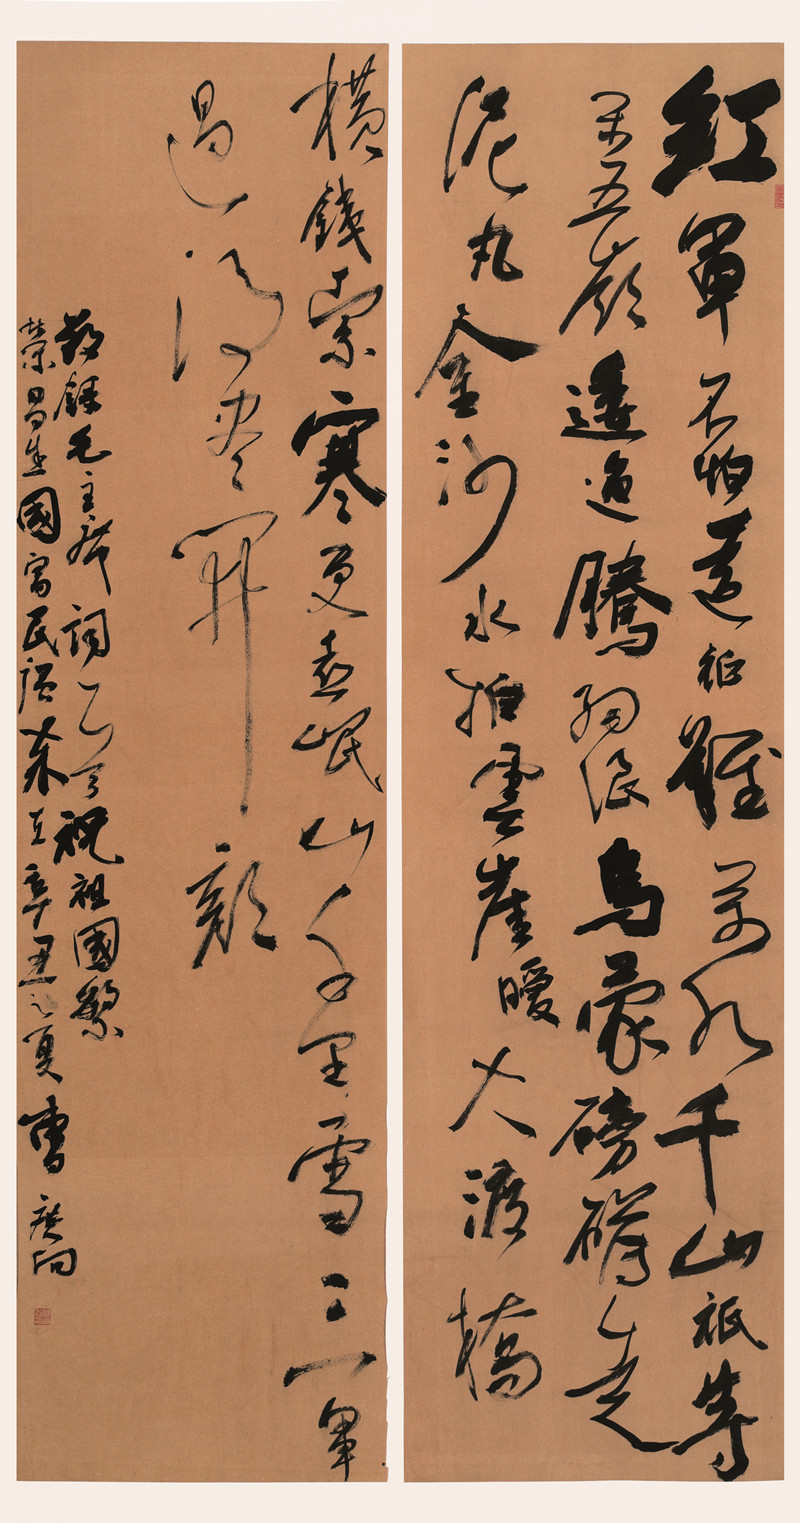 紅軍不怕遠征難萬水千山祇等
閑五嶺逶迤騰細浪烏蒙磅礴走
泥丸金沙水拍雲崖暖大渡橋
橫鐵索寒更喜岷山千里雪三軍
過後尽開顏
敬錄毛主席詞祝祖國繁
榮昌盛國富民強歲在辛丑之夏曹